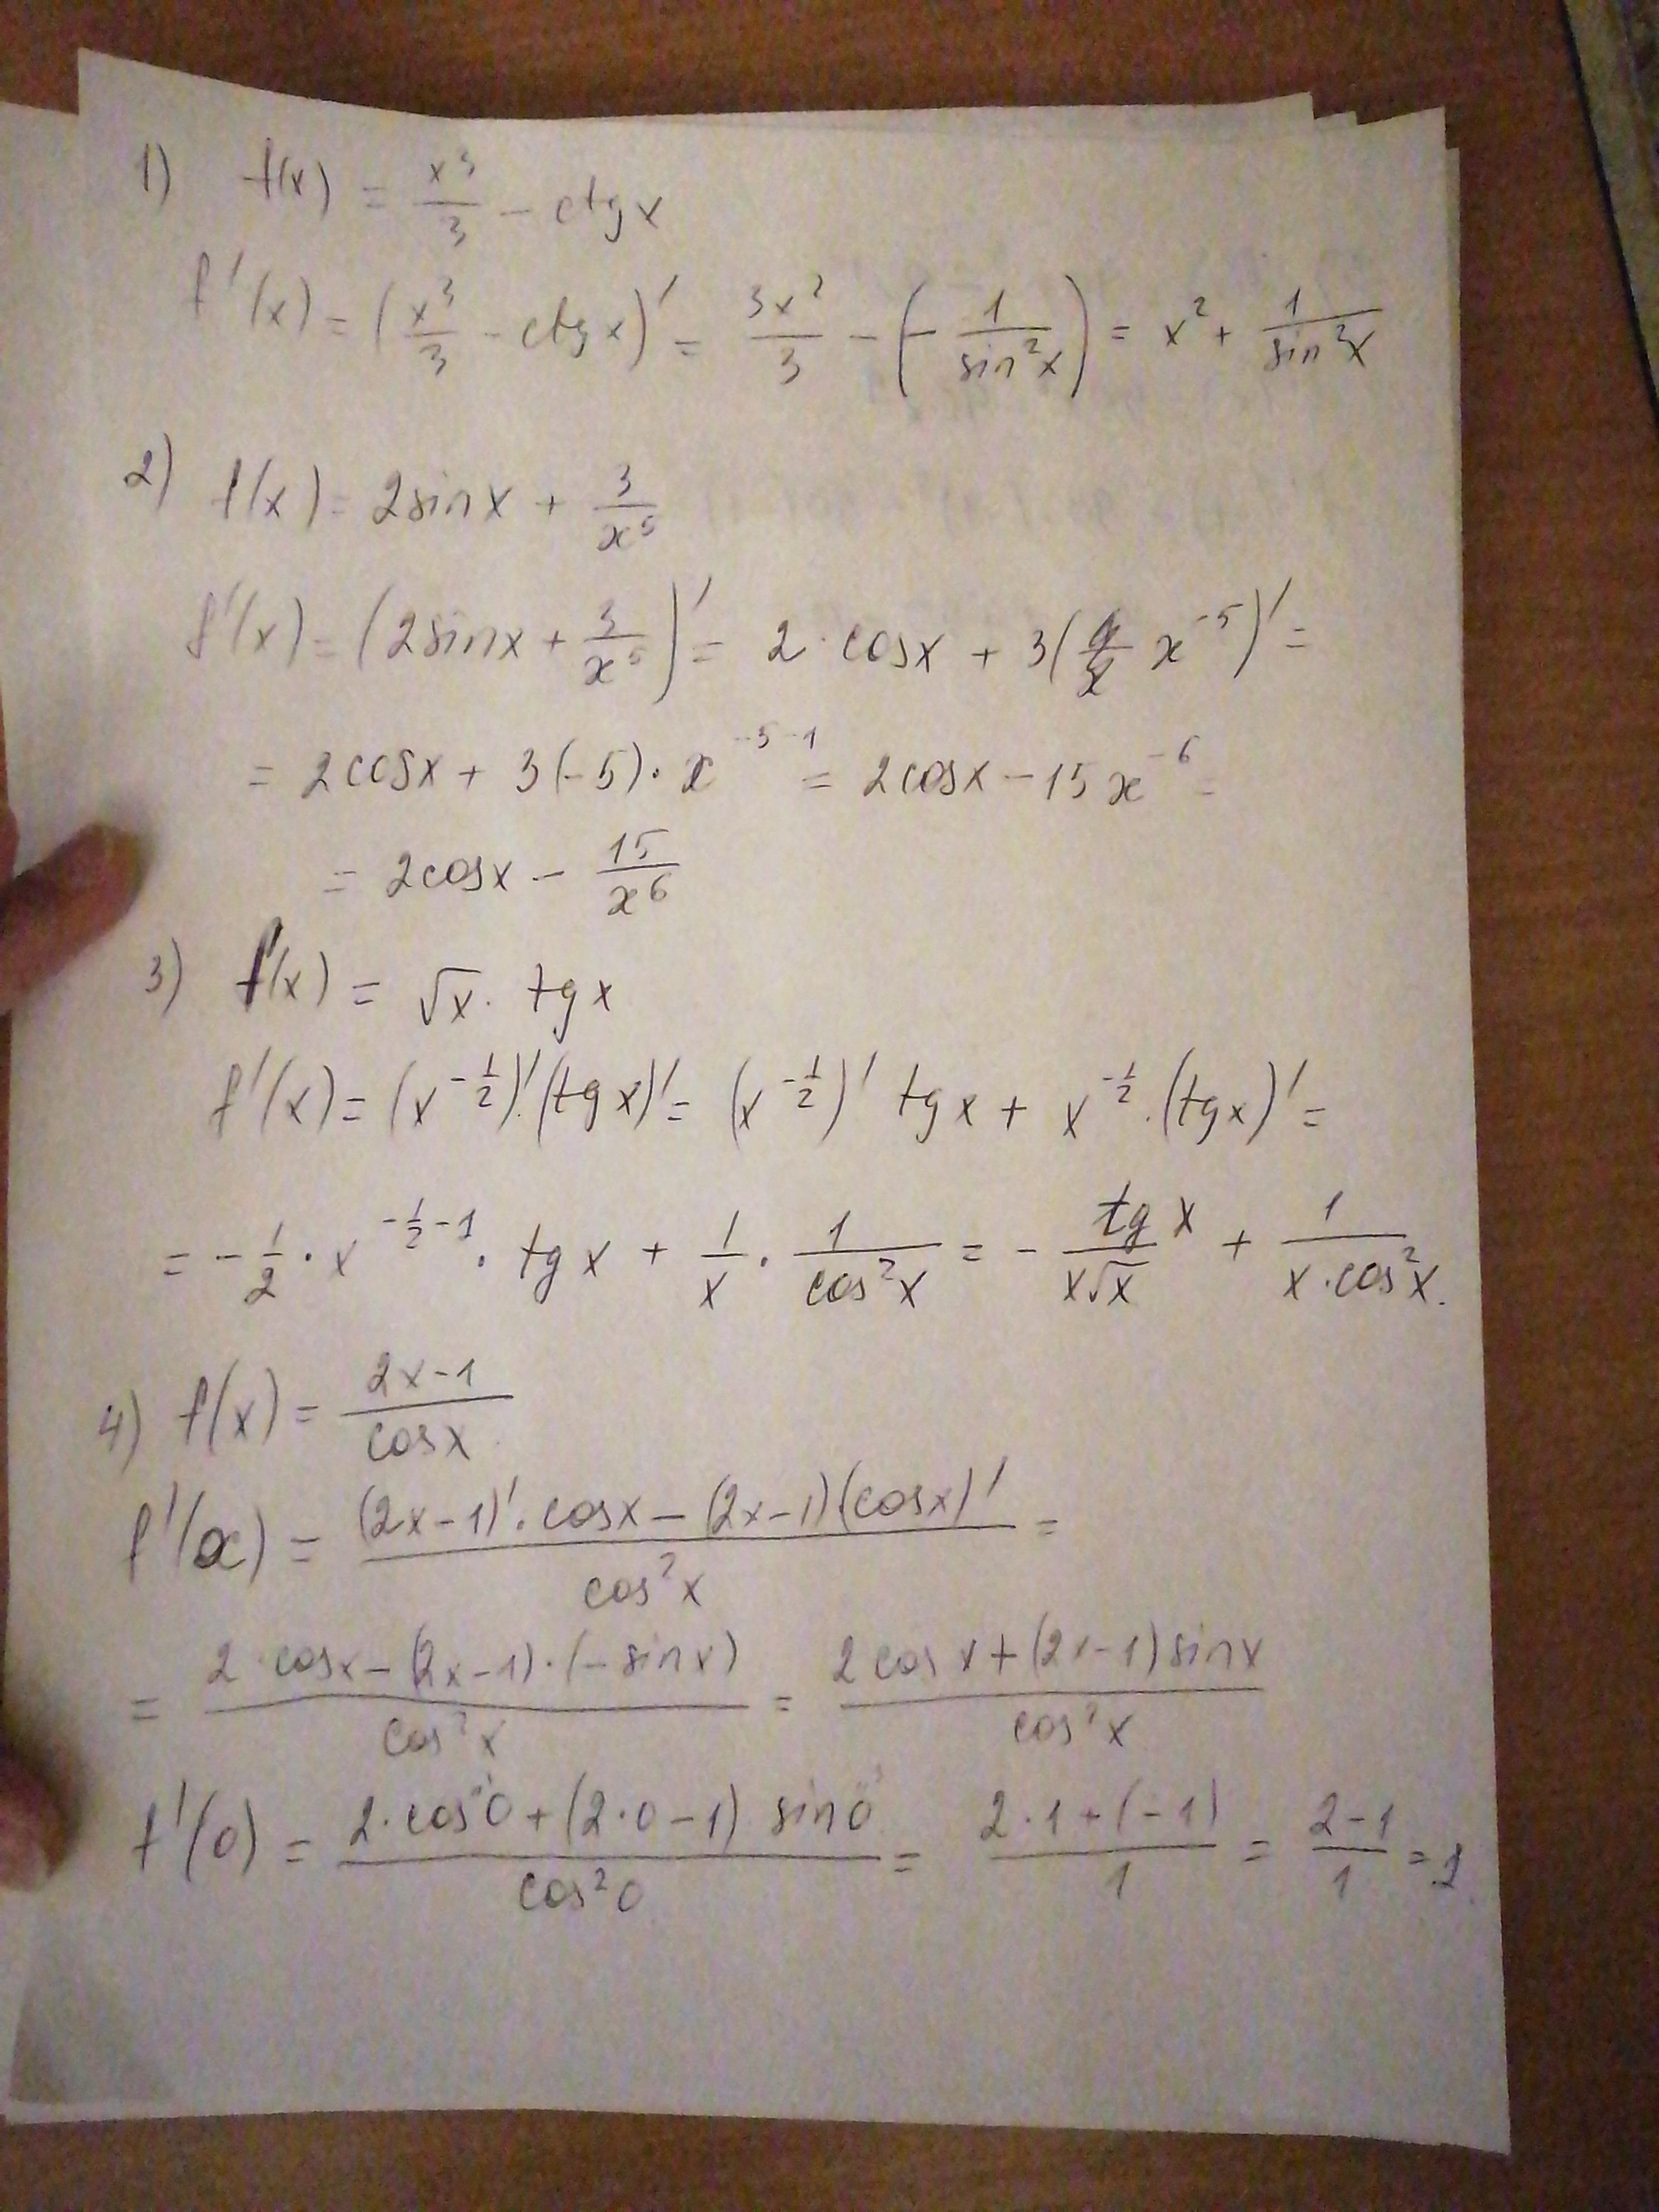 1) f(x) = x³/3 - ctg x
f'(x) = (x³/3 - ctg x)' = 3x²/3 - (- 1/sin²x) = x² + 1/sin²x
2) f(x) = 2sinx + 3/x⁵
f'(x) = (2sinx + 3/x⁵)' = 2·cosx + 3( x⁻⁵)' =
= 2cosx + 3(-5)·x⁻⁵⁻¹ = 2cosx - 15x⁻⁶ =
= 2cosx - 15/x⁶
3) f(x) = √x · tg x
f'(x) = (x^(-1/2))'·(tg x)' = (x^(-1/2))' tg x + x^(-1/2)·(tg x)' =
= - 1/2 · x^(-1/2-1) · tg x + 1/x · 1/cos²x = - tg x/x√x + 1/x·cos²x.
4) f(x) = 2x-1/cosx
f'(x) = (2x-1)'·cosx - (2x-1)(cosx)'/cos²x =
= 2·cosx - (2x-1)·(-sinx)/cos²x = 2cosx + (2x-1)sinx/cos²x
f'(0) = 2·cos0 + (2·0-1) sin0/cos²0 = 2·1 + (-1)/1 = 2-1/1 = 1